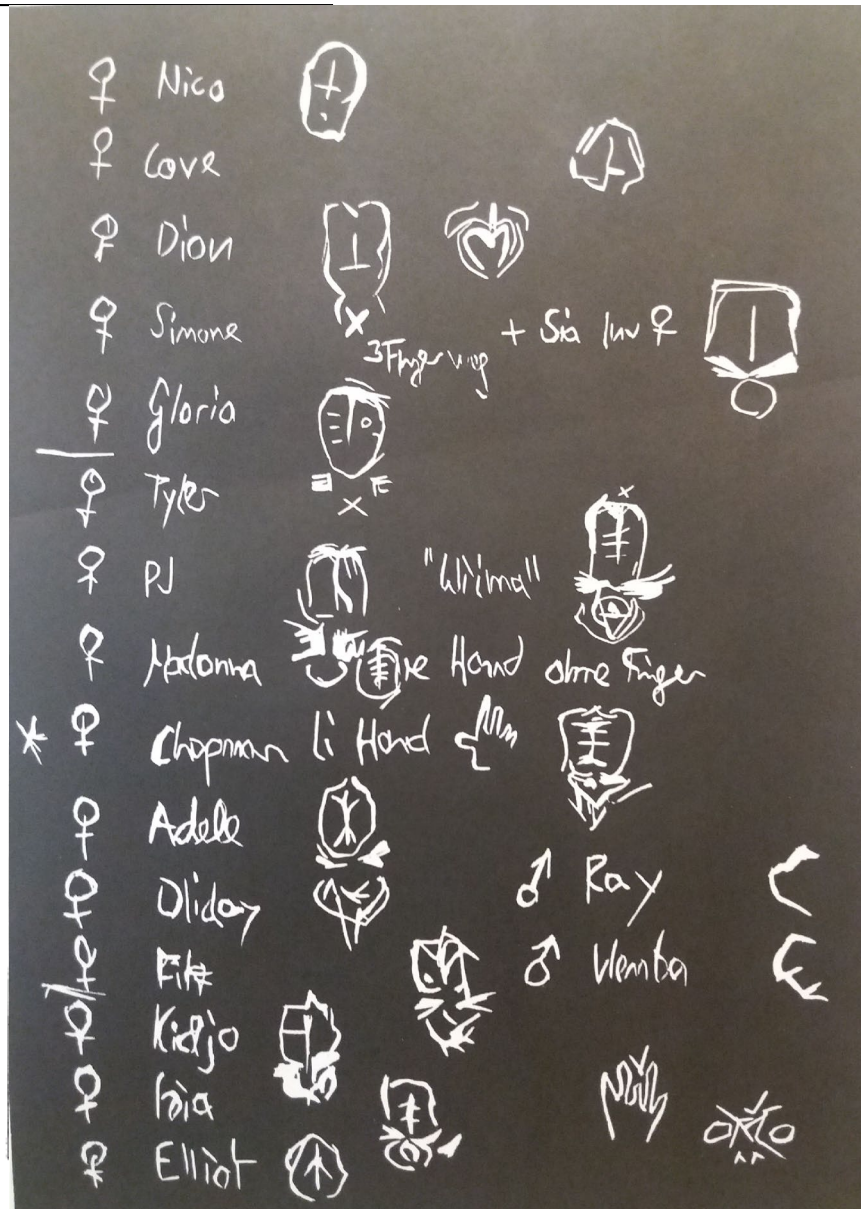 ♀ Nico
♀ Love
♀ Dion
♀ Simone
3 Finger weg + Sia Luv ♀
♀ Gloria
♀ Tyler
♀ PJ "Wiima"
♀ Madonna re Hand ohne Finger
♀ Chapman li Hand
♀ Adele
♂ Ray
♀ Oliday
♀
♂ Wemba
♀ Kidjo
♀
♀ Elliot